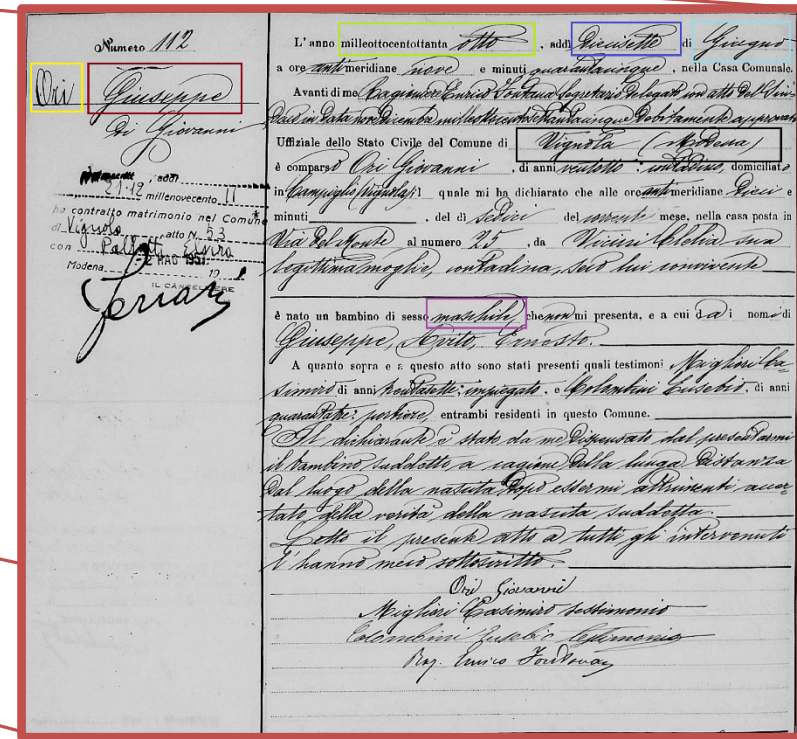 Numero 112
Ori Giuseppe
di Giovanni
, addì
21.12 millenovecento 11
ha contratto matrimonio nel Comune
di Vignola, atto N. 53
con Pallotti Elvira
Modena, -2 MAG 1951 19
IL CANCELLIERE
L'anno milleottocentottanta otto, addì diciisette di Giugno
a ore anti meridiane nove e minuti quarantacinque, nella Casa Comunale.
Avanti di me Ragioniere Enrico Fontana Segretario delegato con atto del Sin-
daco in data nove Dicembre milleottocento debitamente approvato
Uffiziale dello Stato Civile del Comune di Vignola (Modena)
è comparso Ori Giovanni, di anni ventotto, contadino, domiciliato
in Campiglio (Vignola), il quale mi ha dichiarato che alle ore anti meridiane dieci e
minuti , del dì sedici del corrente mese, nella casa posta in
Via del Monte al numero 25, da Vicini Clelia sua
legittima moglie, contadina, seco lui convivente
è nato un bambino di sesso maschile, che non mi presenta, e a cui dà i nomi di
Giuseppe, Avito, Ernesto.
A quanto sopra e a questo atto sono stati presenti quali testimoni Migliori Ca-
simiro di anni trentasette, impiegato, e Colombini Eusebio, di anni
quarantatre, portiere, entrambi residenti in questo Comune.
Il dichiarante è stato da me dispensato dal presentarmi
il bambino suddetto a cagione della lunga distanza
dal luogo della nascita dopo essermi altrimenti accer-
tato della verità della nascita suddetta.
Letto il presente atto a tutti gli intervenuti
l'hanno meco sottoscritto.
Ori Giovanni
Migliori Casimiro testimonio
Colombini Eusebio testimonio
Rag. Enrico Fontana